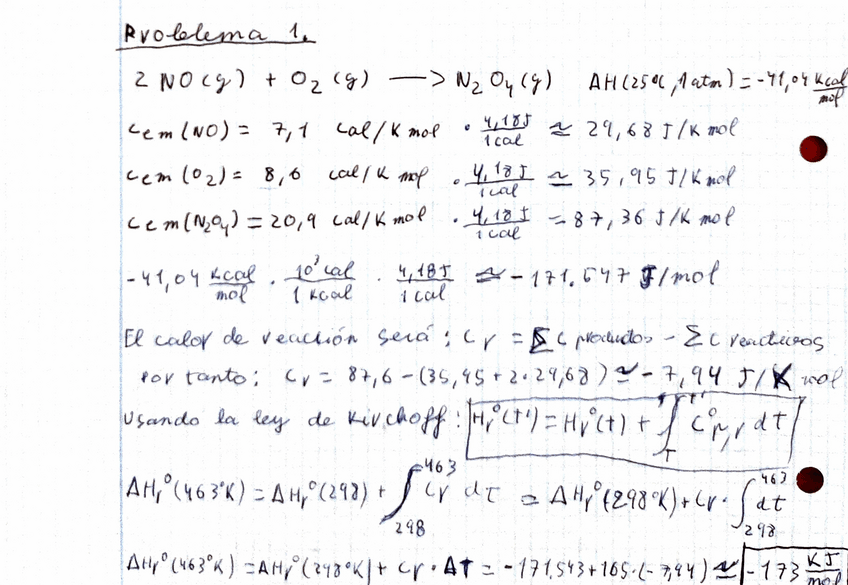 Problema 1.
2 NO(g) + O₂(g) —> N₂O₄(g) ΔH(25ºC, 1atm) = -41,04 kcal/mol
cem(NO) = 7,1 cal/K mol · 4,18J/1cal ≃ 29,68 J/K mol
cem(O₂) = 8,6 cal/K mol · 4,18J/1cal ≃ 35,95 J/K mol
cem(N₂O₄) = 20,9 cal/K mol · 4,18J/1cal = 87,36 J/K mol
-41,04 kcal/mol · 10³cal/1kcal · 4,18J/1cal ≃ -171.547 J/mol
El calor de reacción será: Cr = Σ C productos - Σ C reactivos
por tanto: Cr = 87,6 - (35,95 + 2·29,68) ≃ -7,94 J/K mol
Usando la ley de Kirchoff: Hr°(T') = Hr°(T) + ∫_T^T' C°p,r dT
ΔHr°(463ºK) = ΔHr°(298) + ∫_298^463 Cr dT = ΔHr°(298ºK) + Cr · ∫_298^463 dt
ΔHr°(463ºK) = ΔHr°(298ºK) + Cr · ΔT = -171,543 + 165·(-7,94) ≃ -173 KJ/mol